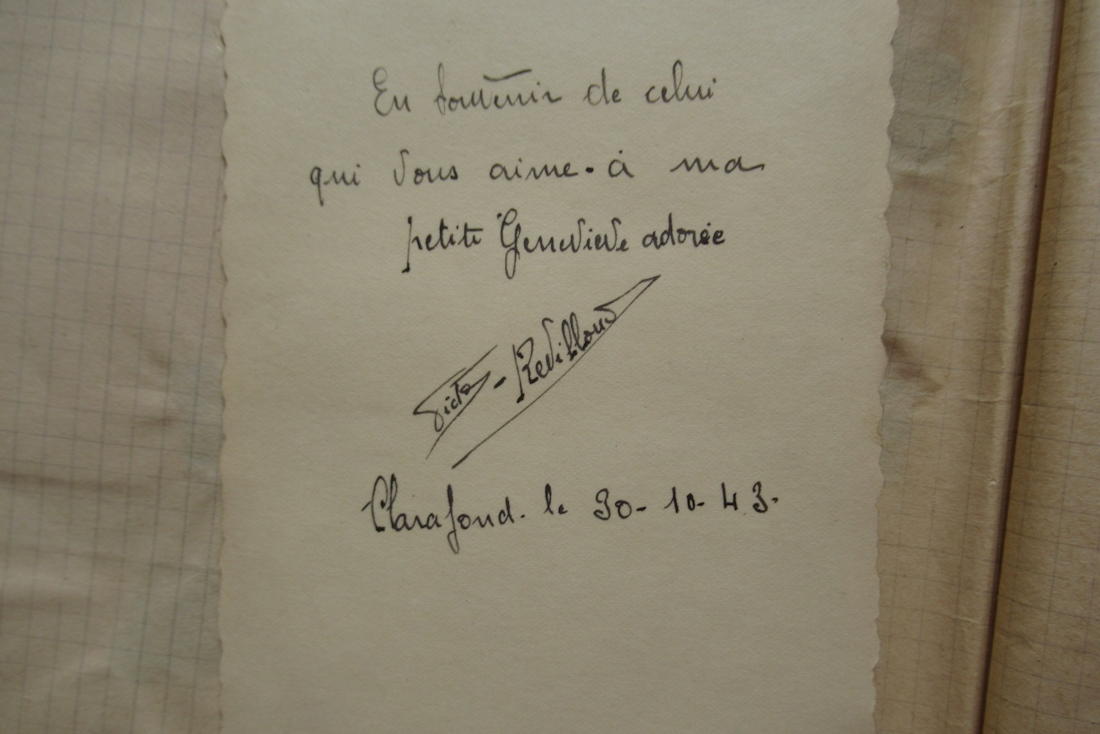 En souvenir de celui
qui vous aime. à ma
petite Geneviève adorée
- Revilloud
Clarafond. le 30-10-43.